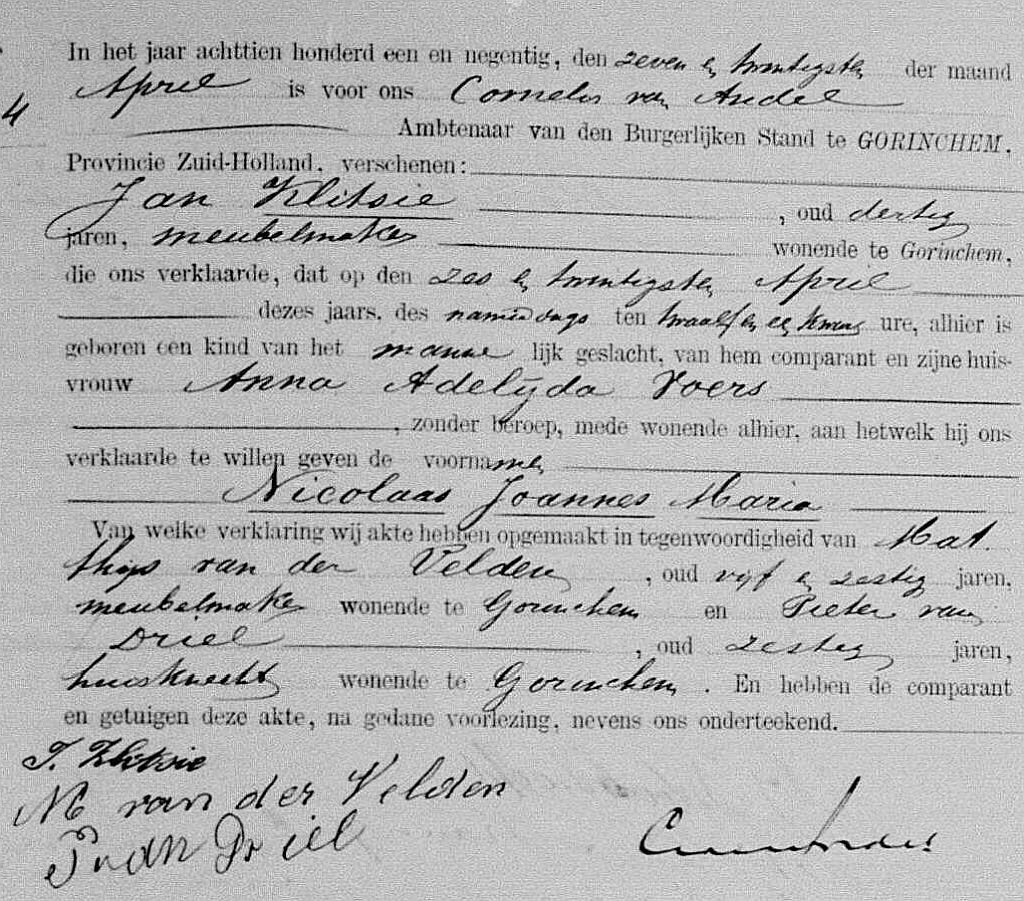 In het jaar achttien honderd een en negentig, den zeven en twintigsten der maand
April is voor ons Cornelis van Andel
4
Ambtenaar van den Burgerlijken Stand te GORINCHEM,
Provincie Zuid-Holland, verschenen:
Jan Klitsie, oud dertig
jaren, meubelmaker wonende te Gorinchem,
die ons verklaarde, dat op den zes en twintigsten April
dezes jaars, des namiddags ten twaalf en een kwart ure, alhier is
geboren een kind van het manne lijk geslacht, van hem comparant en zijne huis-
vrouw Anna Adelijda Voers
, zonder beroep, mede wonende alhier, aan hetwelk hij ons
verklaarde te willen geven de voornamen
Nicolaas Joannes Maria
Van welke verklaring wij akte hebben opgemaakt in tegenwoordigheid van Mat.
thijs van der Velden, oud vijf en zestig jaren,
meubelmaker wonende te Gorinchem en Pieter van
Driel, oud zestig jaren,
huisknecht wonende te Gorinchem. En hebben de comparant
en getuigen deze akte, na gedane voorlezing, nevens ons onderteekend.
J. Klitsie
M van der Velden
P van Driel